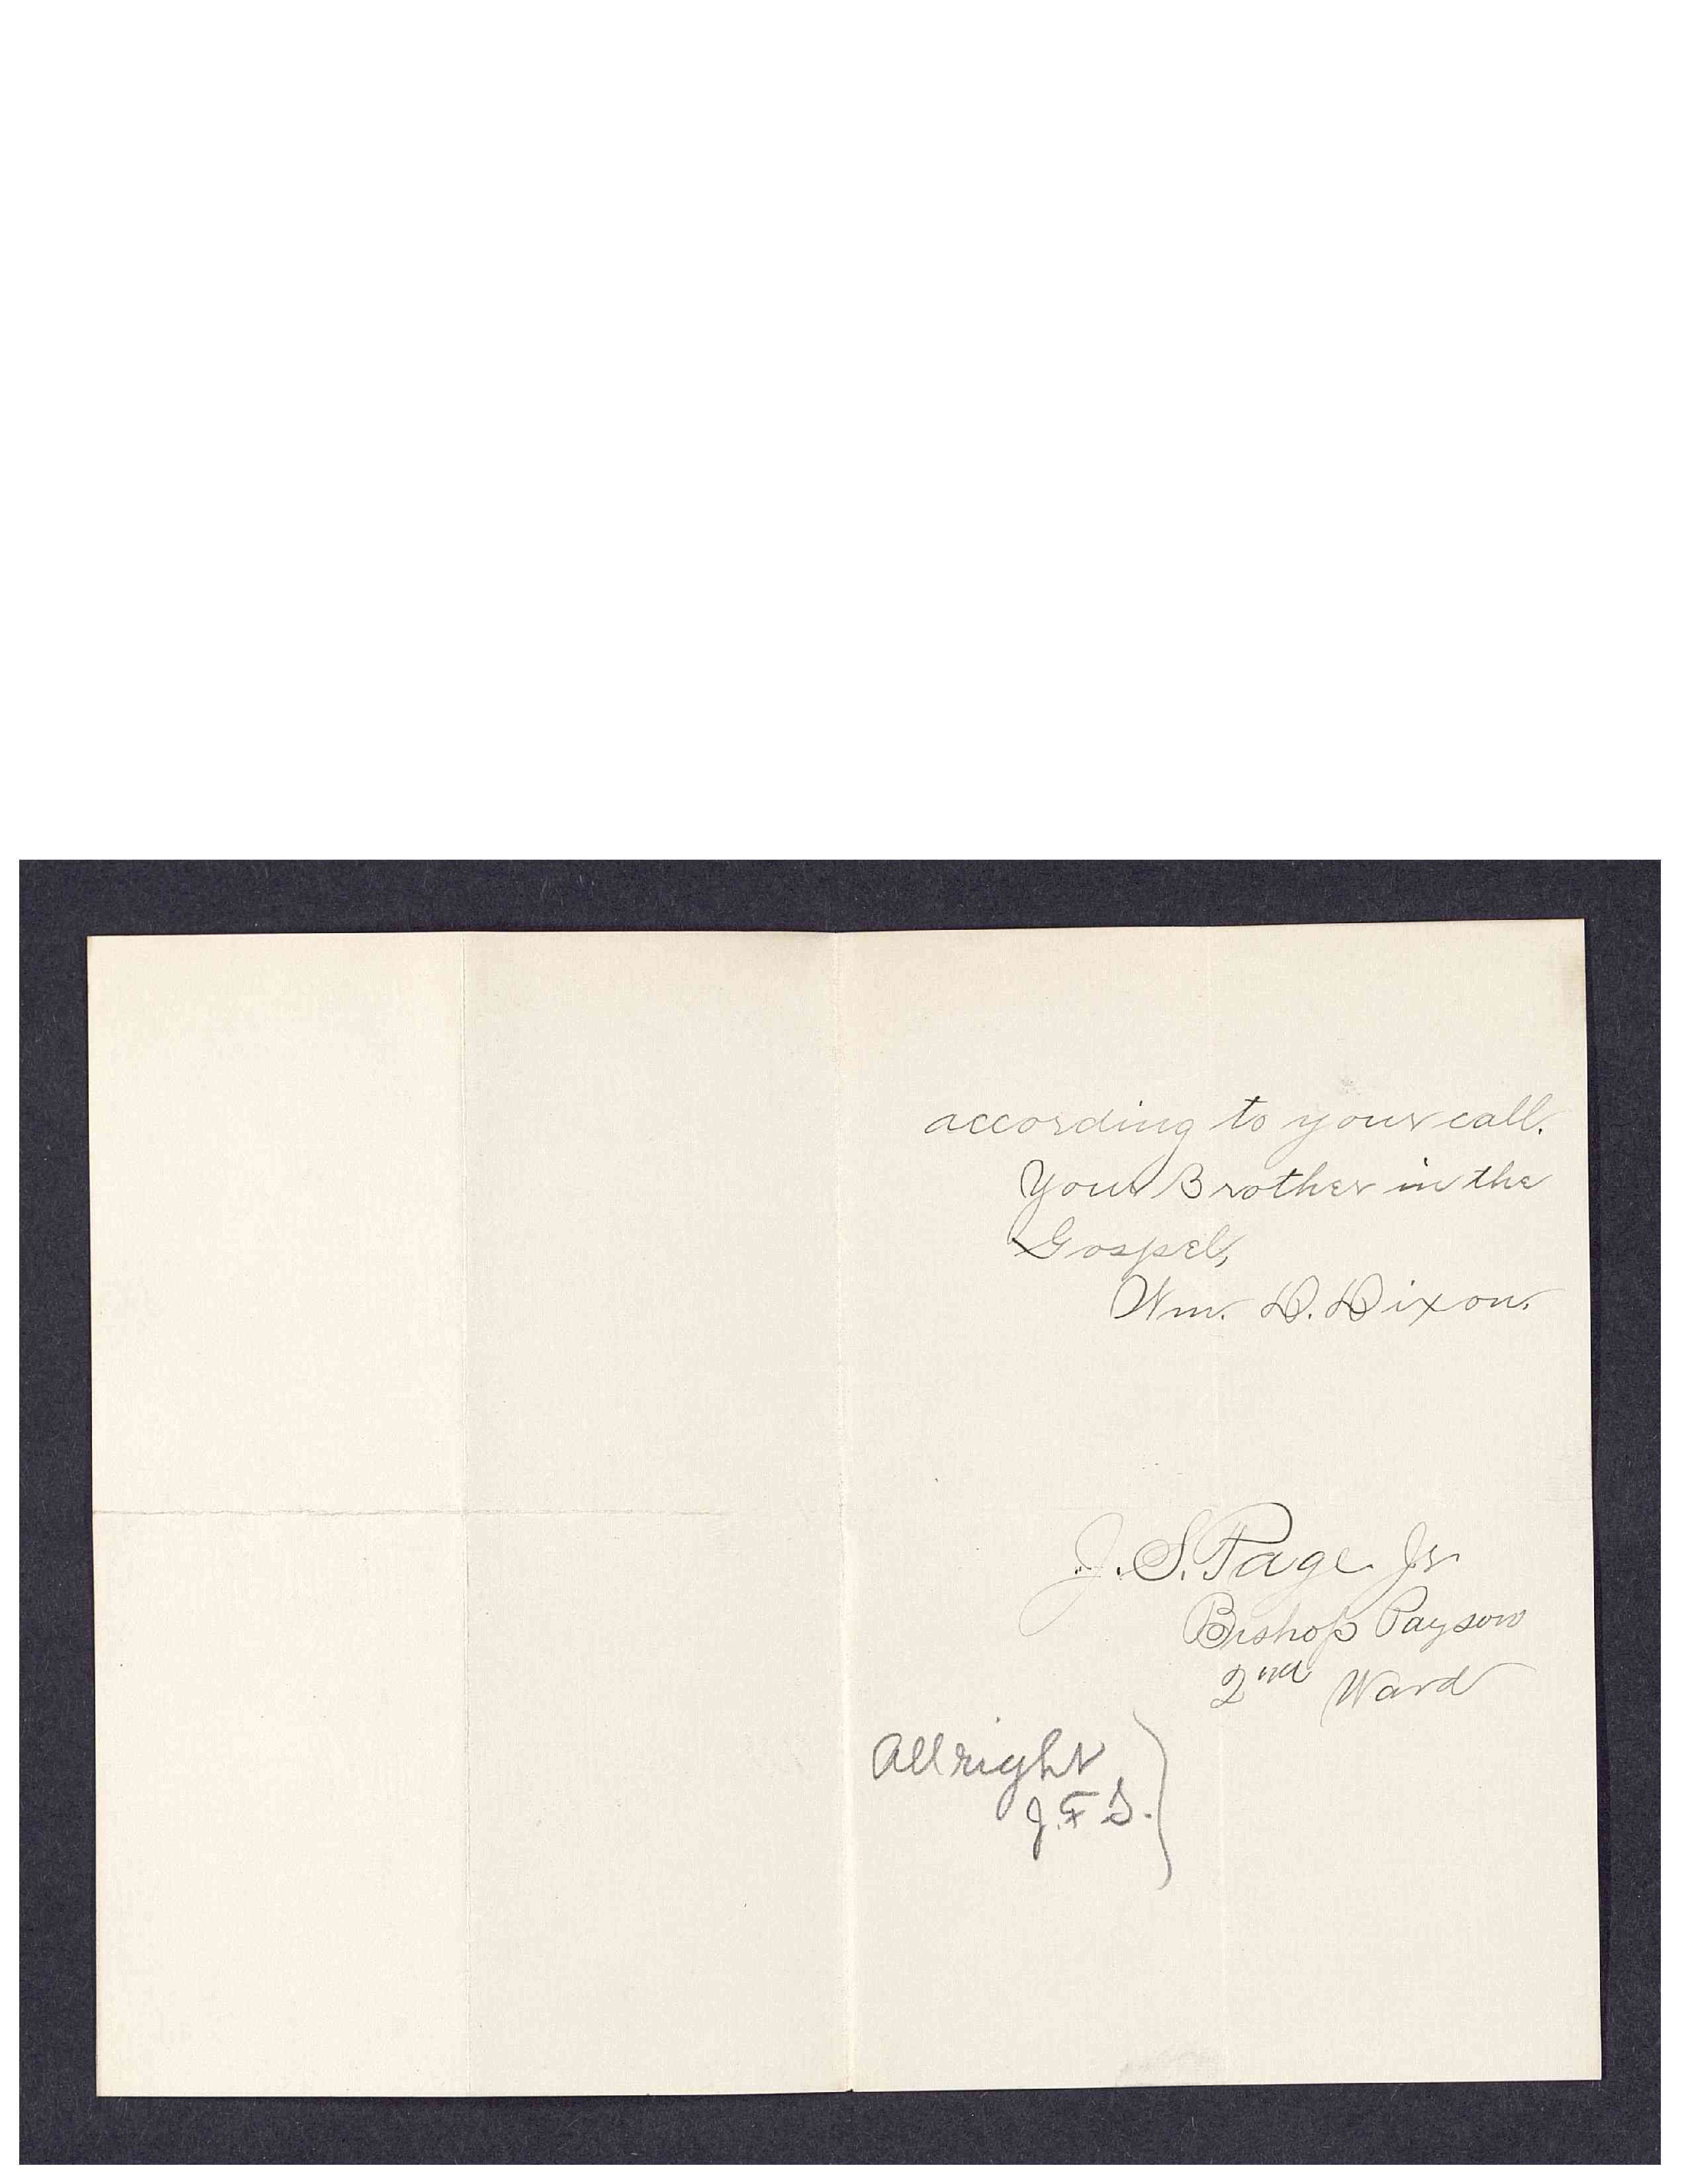 according to your call.
Your Brother in the
Gospel,
Wm. D. Dixon.
J. S. Page Jr
Bishop Payson
2nd Ward
All right
J. F. S.